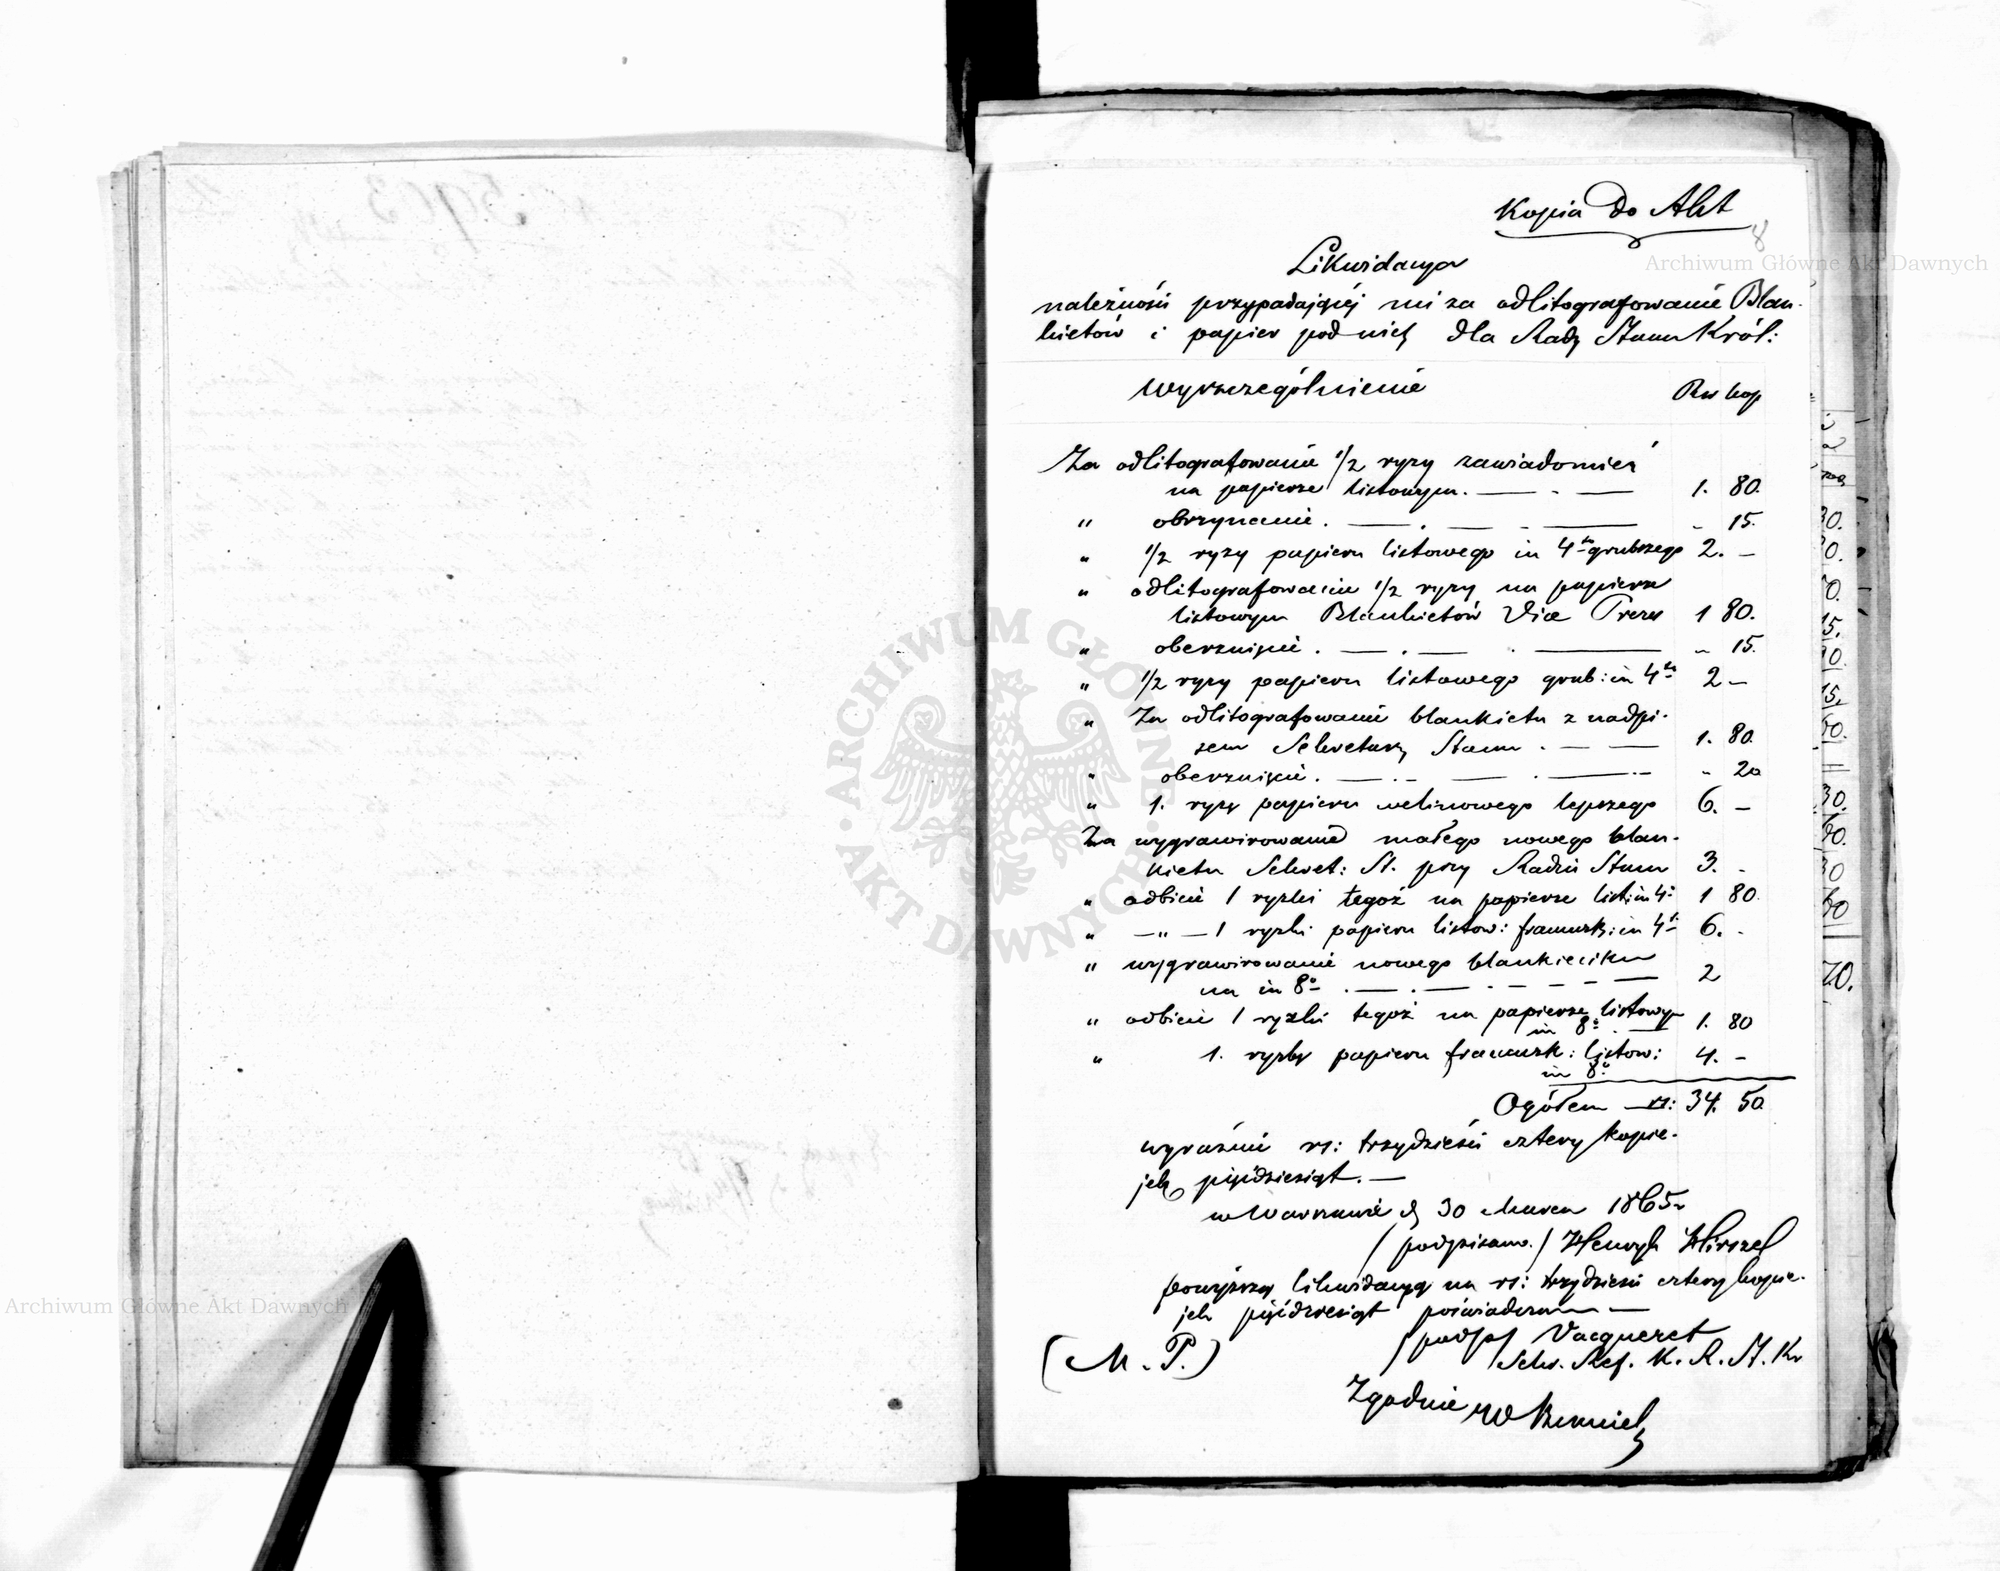 Kopia do Akt
8
Likwidacya
należności przypadającej mi za odlitografowanie Blan-
kietów i papier pod nich dla Rady Stanu Król:
Wyszczególnienie Rs kop
Za odlitografowanie 1/2 ryzy zawiadomień
na papierze listowym. — . — 1. 80.
" obrzynanie . — . — . — " 15.
" 1/2 ryzy papieru listowego in 4to grubszego 2. —
" odlitografowanie 1/2 ryzy na papierze
listowym Blankietów Vice Prezes 1 80.
" oberznięcie . — . — . — " 15.
" 1/2 ryzy papieru listowego grub: in 4to 2 —
" Za odlitografowanie blankietu z nadpi-
sem Sekretarz Stanu . — — 1. 80.
" oberznięcie . — . — . — " 20
" 1. ryzy papieru welinowego lepszego 6. —
Za wygrawirowanie małego nowego blan-
kietu Sekret: St. przy Radzie Stanu 3. -
" odbicie 1 ryzki tegoż na papierze list: in 4o 1 80.
" — " — 1 ryzki papieru listow: francuzk: in 4o 6. -
" wygrawirowanie nowego blankieciku
na in 8o . — . — . — — — — 2
" odbicie 1 ryzki tegoż na papierze listowym
in 8o . — 1. 80
" 1. ryzky papieru francuzk: listow:
in 8o 4. -
Ogółem — rs: 34. 50
wyraźnie rs: trzydzieści cztery kopie-
jek pięćdziesiąt. —
w Warszawie d 30 Marca 1865 r
/podpisano./ Henryk Hirszel
powyższą likwidacyę na rs: trzydzieści cztery kopie-
jek pięćdziesiąt poświadczam —
/podp/ Vacqueret
Sekr. Ref. K. R. St. Kr
(M. P.)
Zgodnie
Archiwum Główne Akt Dawnych
Archiwum Główne Akt Dawnych
ARCHIWUM GŁÓWNE
AKT DAWNYCH